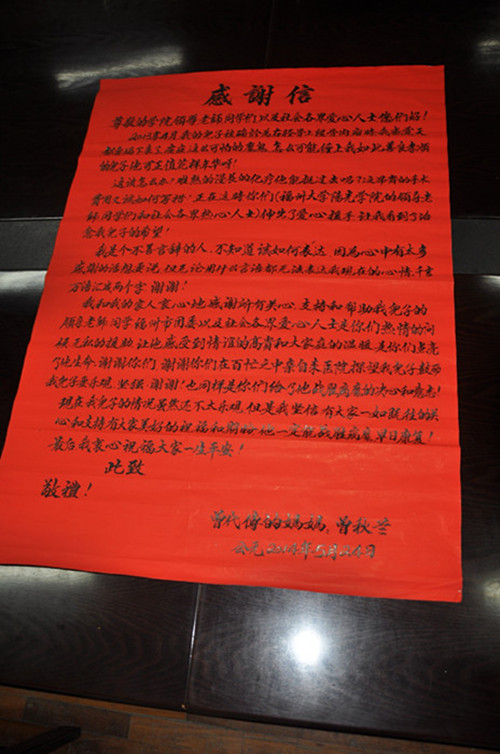 感謝信
尊敬的学院领导老师同学们以及社会各界爱心人士您们好！
2013年4月我的儿子被确诊为左胫骨上段骨肉瘤时我感觉天
都要塌下来了应这么可怕的魔鬼怎么可能缠上我如此善良孝顺
的儿子他可正值花样年华呀！
这该怎么办？难熬的漫长的化疗他能挺过去吗？还带有的手术
费用又该如何筹措？正在这时你们(福州大学陽光学院的领导老
師同学们和社会各界热心人士)伸出了爱心援手让我看到了治
愈我儿子的希望！
我是个不善言辞的人，不知道该如何表达，因为心中有太多
感谢的话想要说，但无论用什么言语都无法表达我现在的心情，千言
万语汇成两个字：谢谢！
我和我的家人衷心地感谢所有关心、支持和帮助我儿子的
领导老師同学福州市团委以及社会各界爱心人士是你们热情的问
候无私的援助，让他感受到情谊的高贵和大家庭的温暖是你们点亮
了他生命，谢谢你们，谢谢你们在百忙之中亲自来医院探望我儿子鼓励
我儿子要乐观、坚强，谢谢！也同样是你们给了他战胜病魔的决心和意志！
现在我儿子的情况虽然还不太乐观，但是我坚信有大家一如既往的关
心和支持有大家美好的祝福和期盼他一定能战胜病魔早日康复！
最后我衷心祝福大家一生平安！
此致
敬禮！
曾代傳的媽媽：曾秋兰
公元2014年5月24日